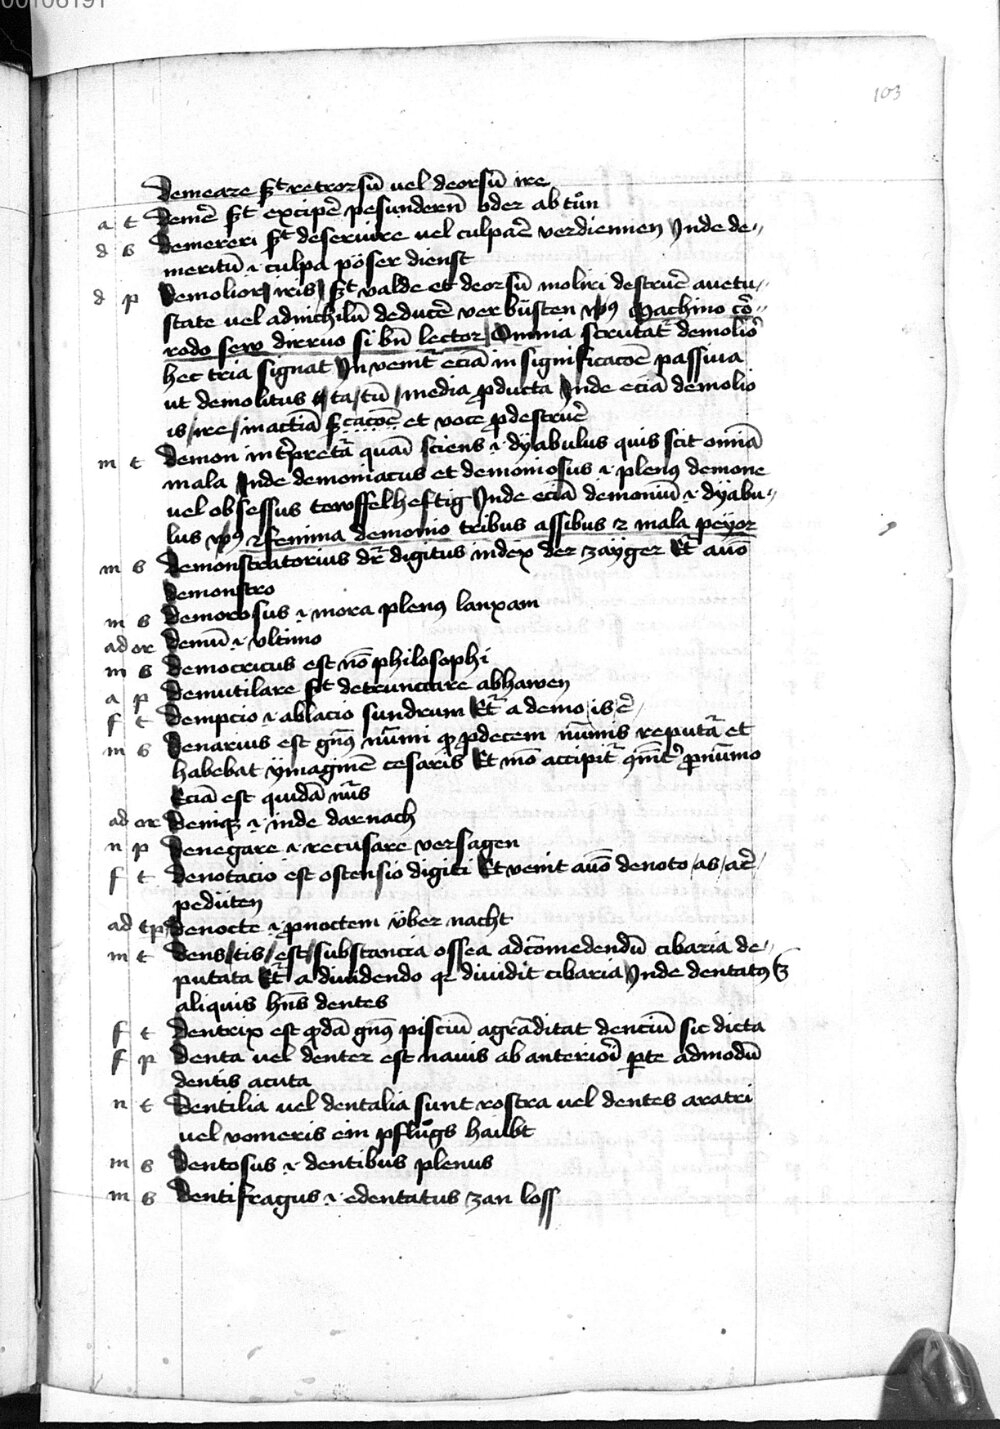 00106191
103
Demeare st retrorsū uel deorsū ire
a t Demē st excipē pesundern oder ab tůn
d s Demereri st deseruire uel culpaē verdiennen Jnde de-
meritū ·i· culpa pöser dienst
d p Demolior iris st valde et deorsū moliri destruē auetu-
state uel adnichilū deducē ver büsten Machino
rodo sew diruo si bn lector Omnia scrutat demolior
hec tria signat Jn venit eciā in significacōe passiua
ut demolitus /ta/tū/ media pducta Jnde eciā demolio
is/ire/ in actiā et voce p destruē
m t Demon int̄pretā quasi sciens ·i· dyabulus quis scit omīa
mala Jnde demoniacus et demoniosus ·i· plenus demone
uel obsessus tewffelheftig Jnde eciā demoniū ·i· dyabu-
lus femina demonio tribus assibus mala peyor
m s Demonstratorius dr̄ digitus index der zayger Et auō
demonstro
m s Demorosus ·i· mora plenus lanxam
ad or Demū ·i· vltimo
m s Democritus est nō philosophi
a p Demutilare st detruncare abhawen
f t Dempcio ·i· ablacio sundrum Et a demo/is/ē/
m s Denarius est gn̄s nūmi p decem nūmis reputā et
habebat ymaginē cesaris Et mō accipit p nūmo
Eciā est quidā
ad or Deniq ·i· inde darnach
n p Denegare ·i· recusare versagen
f t Denotacio est ostensio digiti Et venit auō denoto/as/arē/
pedüten
ad tp Denocte ·i· pnoctem über nacht
m t Dens/tis/est/substancia ossea ad cōmedendū cibaria de-
putata Et a diuidendo qr diuidit cibaria Jnde dentatus
aliquis hns dentes
f t Dentrix est qdā gn̄s pisciū denciū sic dicta
f p Denta uel denter est nauis ab anteriori pte admodū
dentis acuta
n t Dentilia uel dentalia sunt rostra uel dentes aratri
uel vomeris ein pflůgs haubt
m s Dentosus ·i· dentibus plenus
m s Dentifragus ·i· edentatus zan loss